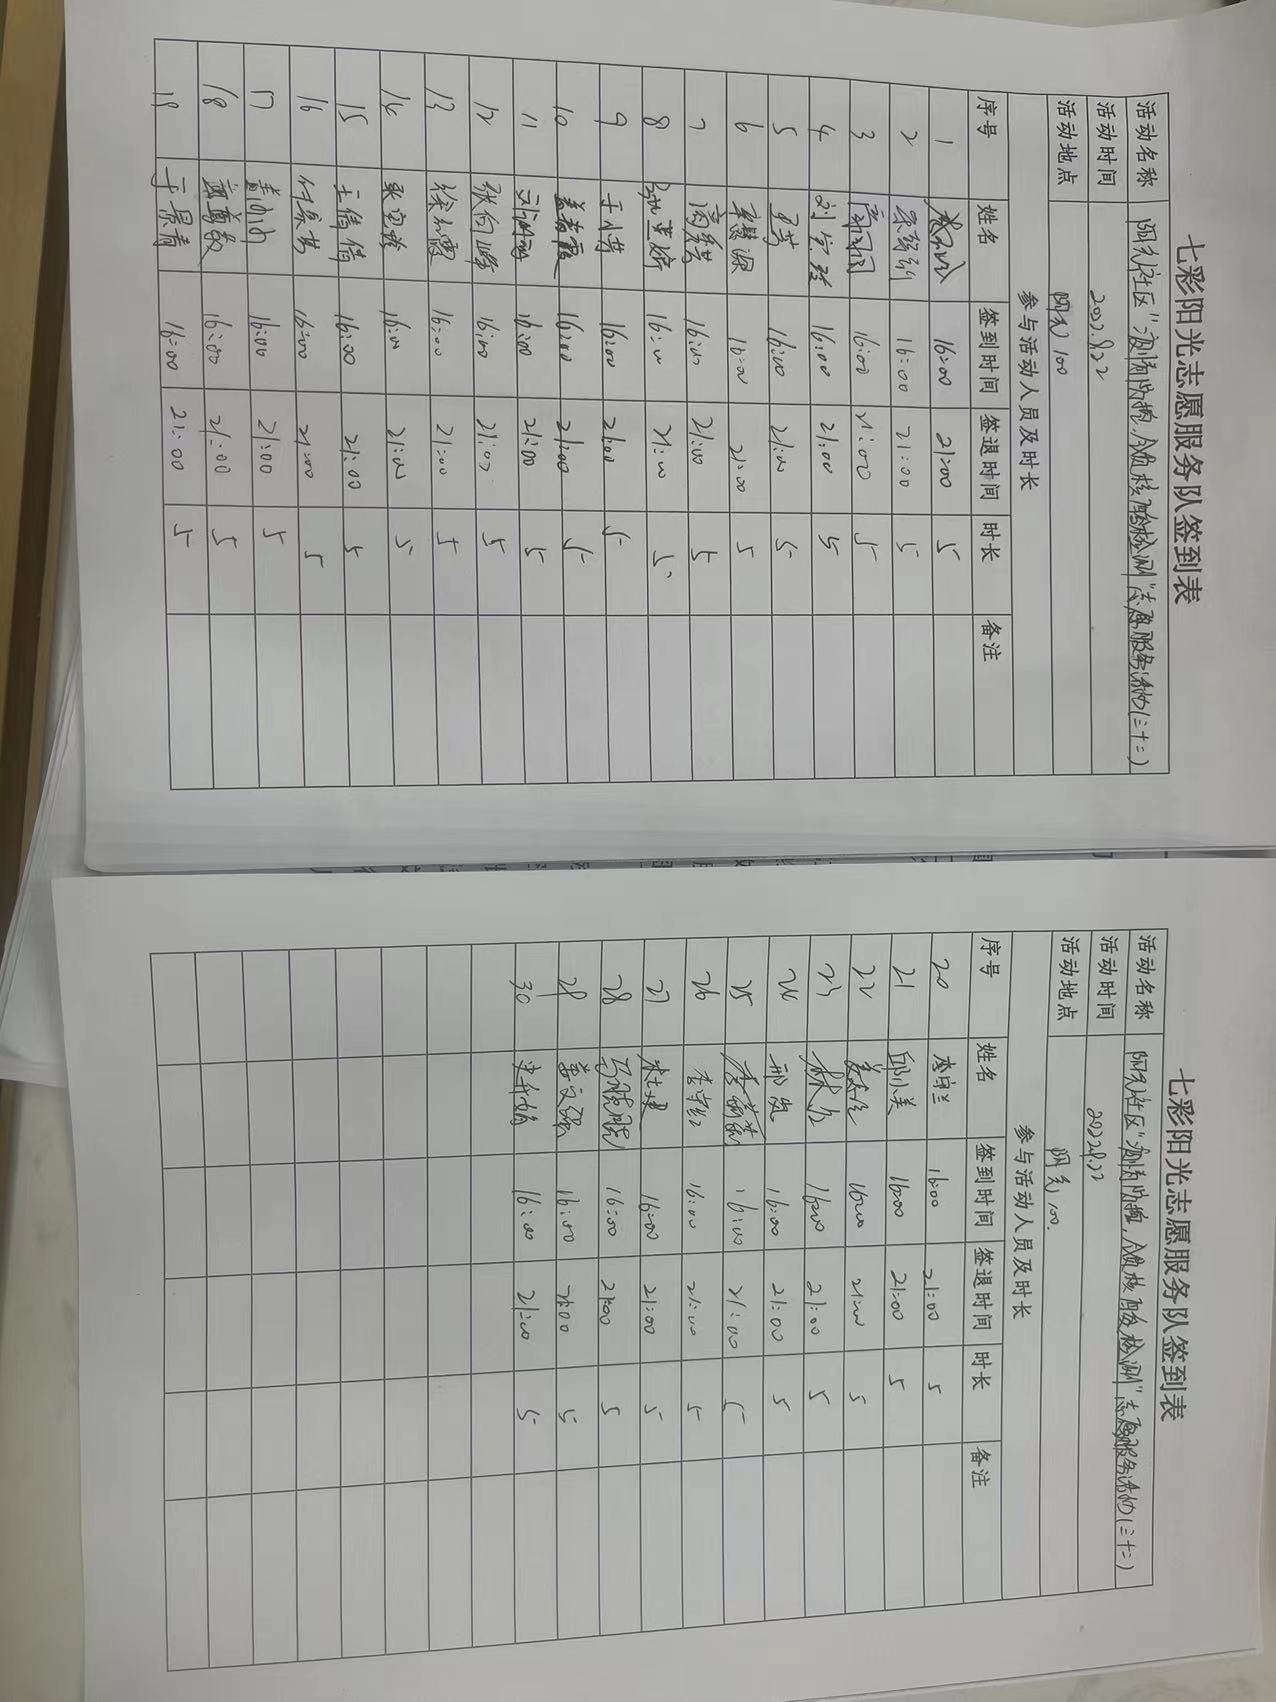 七彩阳光志愿服务队签到表
活动名称 阳光社区"疫情防控,全员核酸检测"志愿服务活动(三十二)
活动时间 2022.9.22
活动地点 阳光100
参与活动人员及时长
序号 姓名 签到时间 签退时间 时长 备注
1 16:00 21:00 5
2 16:00 21:00 5
3 16:00 21:00 5
4 16:00 21:00 5
5 16:00 21:00 5
6 16:00 21:00 5
7 16:00 21:00 5
8 16:00 21:00 5
9 16:00 21:00 5
10 盖春霞 16:00 21:00 5
11 16:00 21:00 5
12 16:00 21:00 5
13 徐红霞 16:00 21:00 5
14 16:00 21:00 5
15 王倩倩 16:00 21:00 5
16 16:00 21:00 5
17 16:00 21:00 5
18 16:00 21:00 5
19 于景青 16:00 21:00 5
七彩阳光志愿服务队签到表
活动名称 阳光社区"疫情防控,全员核酸检测"志愿服务活动(三十二)
活动时间 2022.9.22
活动地点 阳光100.
参与活动人员及时长
序号 姓名 签到时间 签退时间 时长 备注
20 李守兰 16:00 21:00 5
21 邱小美 16:00 21:00 5
22 16:00 21:00 5
23 16:00 21:00 5
24 邢岚 16:00 21:00 5
25 16:00 21:00 5
26 李学红 16:00 21:00 5
27 16:00 21:00 5
28 马晓晓 16:00 21:00 5
29 姜文强 16:00 21:00 5
30 16:00 21:00 5